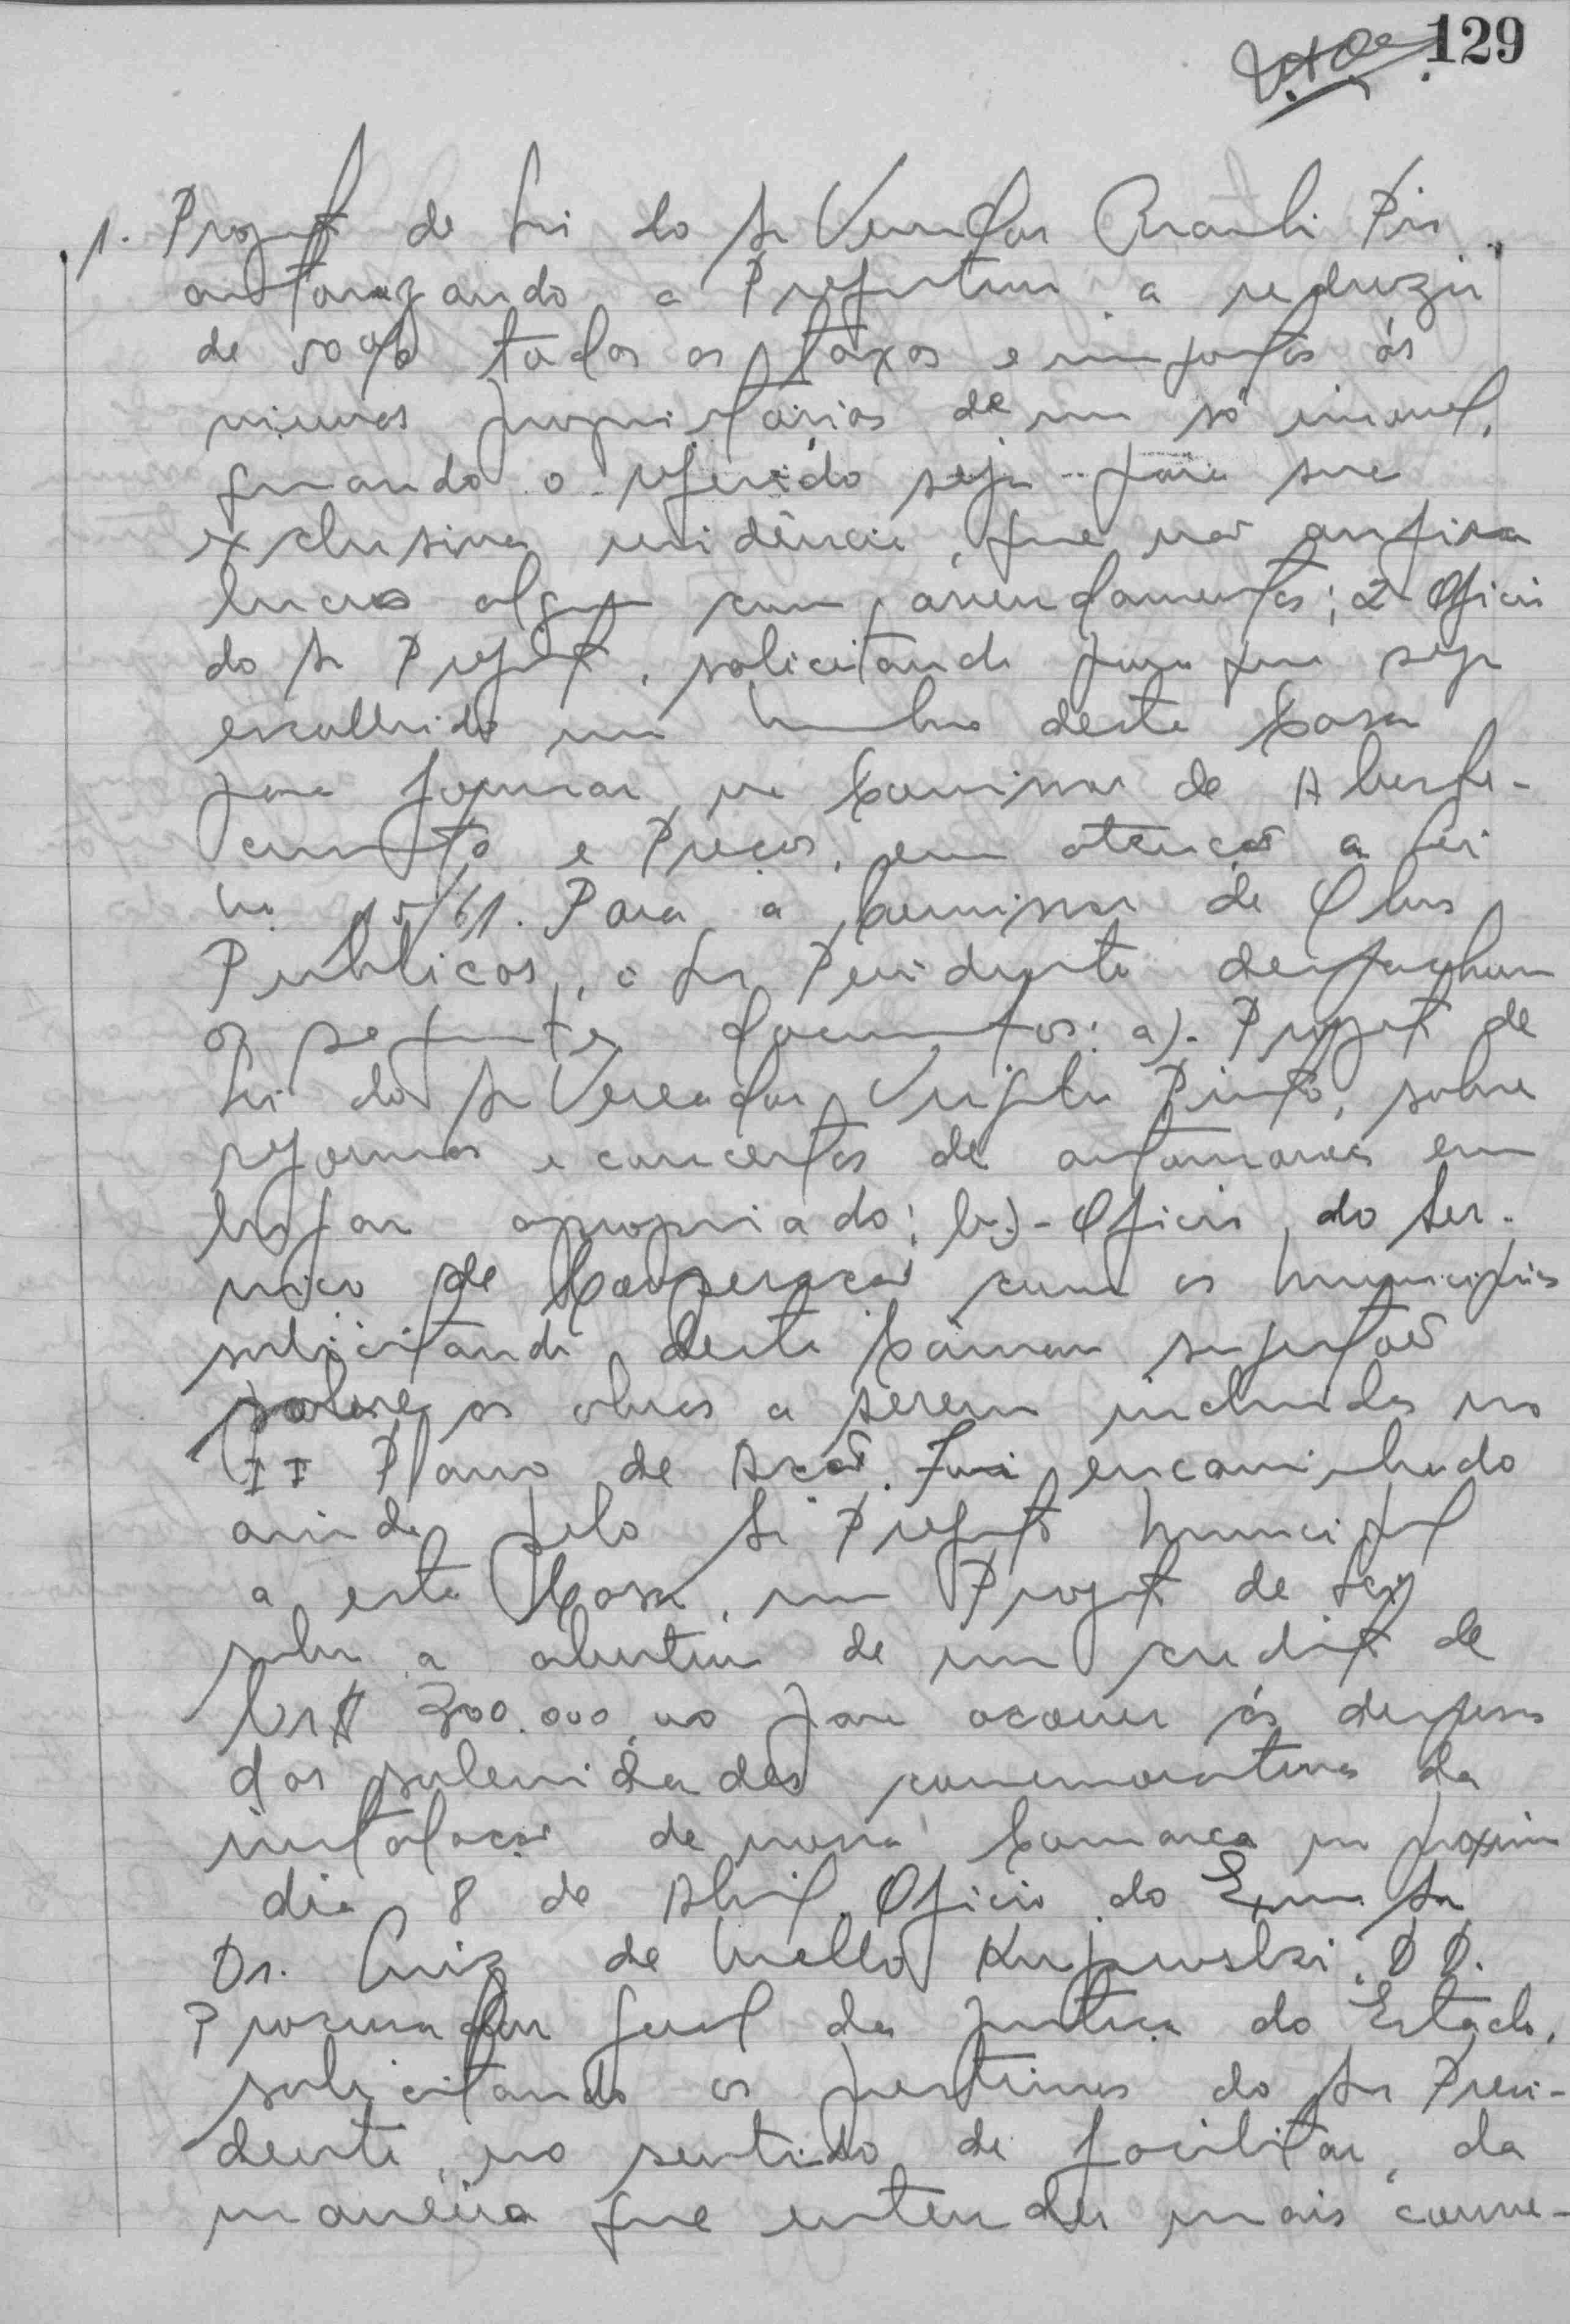 129
1. Projeto de Lei do Sr Vereador Pires
autorizando a Prefeitura a reduzir
de 50% todas as taxas e impostos ás
viuvas proprietárias de um só imovel,
quando o referido seja para sua
exclusiva residência, que não aufira
lucros algum com arrendamentos; 2- Oficio
do Sr Prefeito, solicitando para que seja
escolhido um membro desta Casa
para formar na Comissão de Abaste-
cimento e Preços, em atenção a Lei
nº 15/61. Para a Comissão de Obras
Publicas, o Sr Presidente despachou
os seguintes documentos: a)- Projeto de
Lei do Sr Vereador Pinto, sobre
reformas e concertos de automoveis em
lugar apropriado; b)- Oficio do Ser-
viço de Cooperação com os Municipios
solicitando desta Câmara sugestão
sobre as obras a serem incluidas no
II Plano de Ação. Foi encaminhado
ainda pelo Sr Prefeito Municipal
a esta Casa, um Projeto de Lei
sobre a abertura de um credito de
Cr$ 300.000,00 para ocorrer ás despesas
das solenidades comemorativas da
instalação de nossa Comarca no proximo
dia 8 de Abril. Oficio do Exmo Sr
Dr. Luiz de Mello Kujawski. D D.
Procurador Geral da Justiça do Estado,
solicitando os prestimos do Sr Presi-
dente, no sentido de facilitar, da
maneira que entender mais conve-